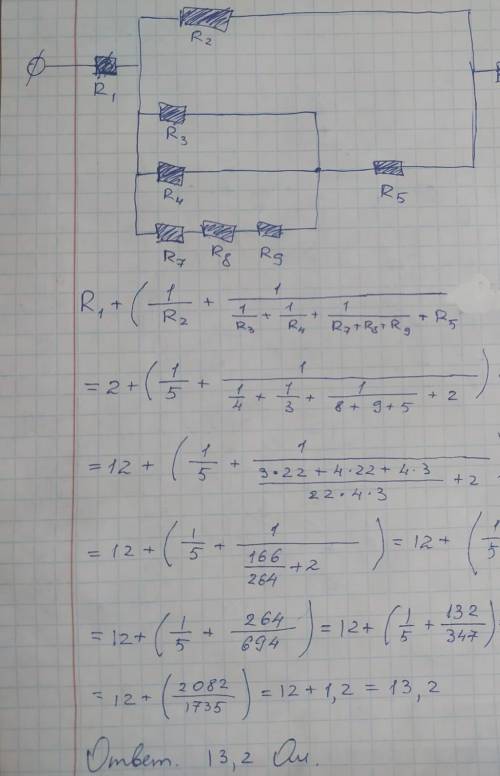 R₂
R₁
R₃
R₄
R₅
R₇ R₈ R₉
R₁ + ( 1/R₂ + 1/(1/R₃ + 1/R₄ + 1/(R₇+R₈+R₉) + R₅
= 2 + ( 1/5 + 1/(1/4 + 1/3 + 1/(8 + 9 + 5) + 2) )
= 12 + ( 1/5 + 1/((3·22 + 4·22 + 4·3)/(22·4·3) + 2)
= 12 + ( 1/5 + 1/(166/264 + 2) ) = 12 + ( 1/5
= 12 + ( 1/5 + 264/694 ) = 12 + ( 1/5 + 132/347 )
= 12 + ( 2082/1735 ) = 12 + 1,2 = 13,2
Ответ. 13,2 Ом.